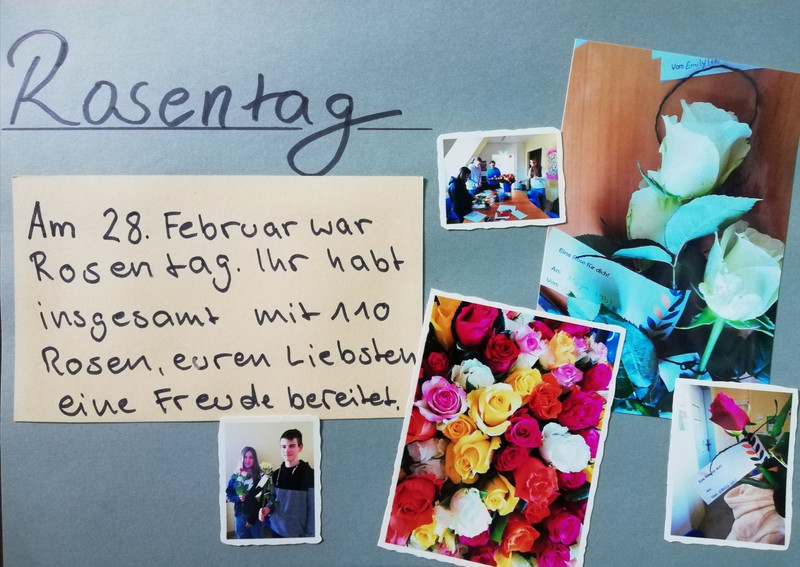 Rosentag
Am 28. Februar war
Rosentag. Ihr habt
insgesamt mit 110
Rosen, euren Liebsten
eine Freude bereitet.
Von: Emily
Eine Rose für dich!
An:
Von: